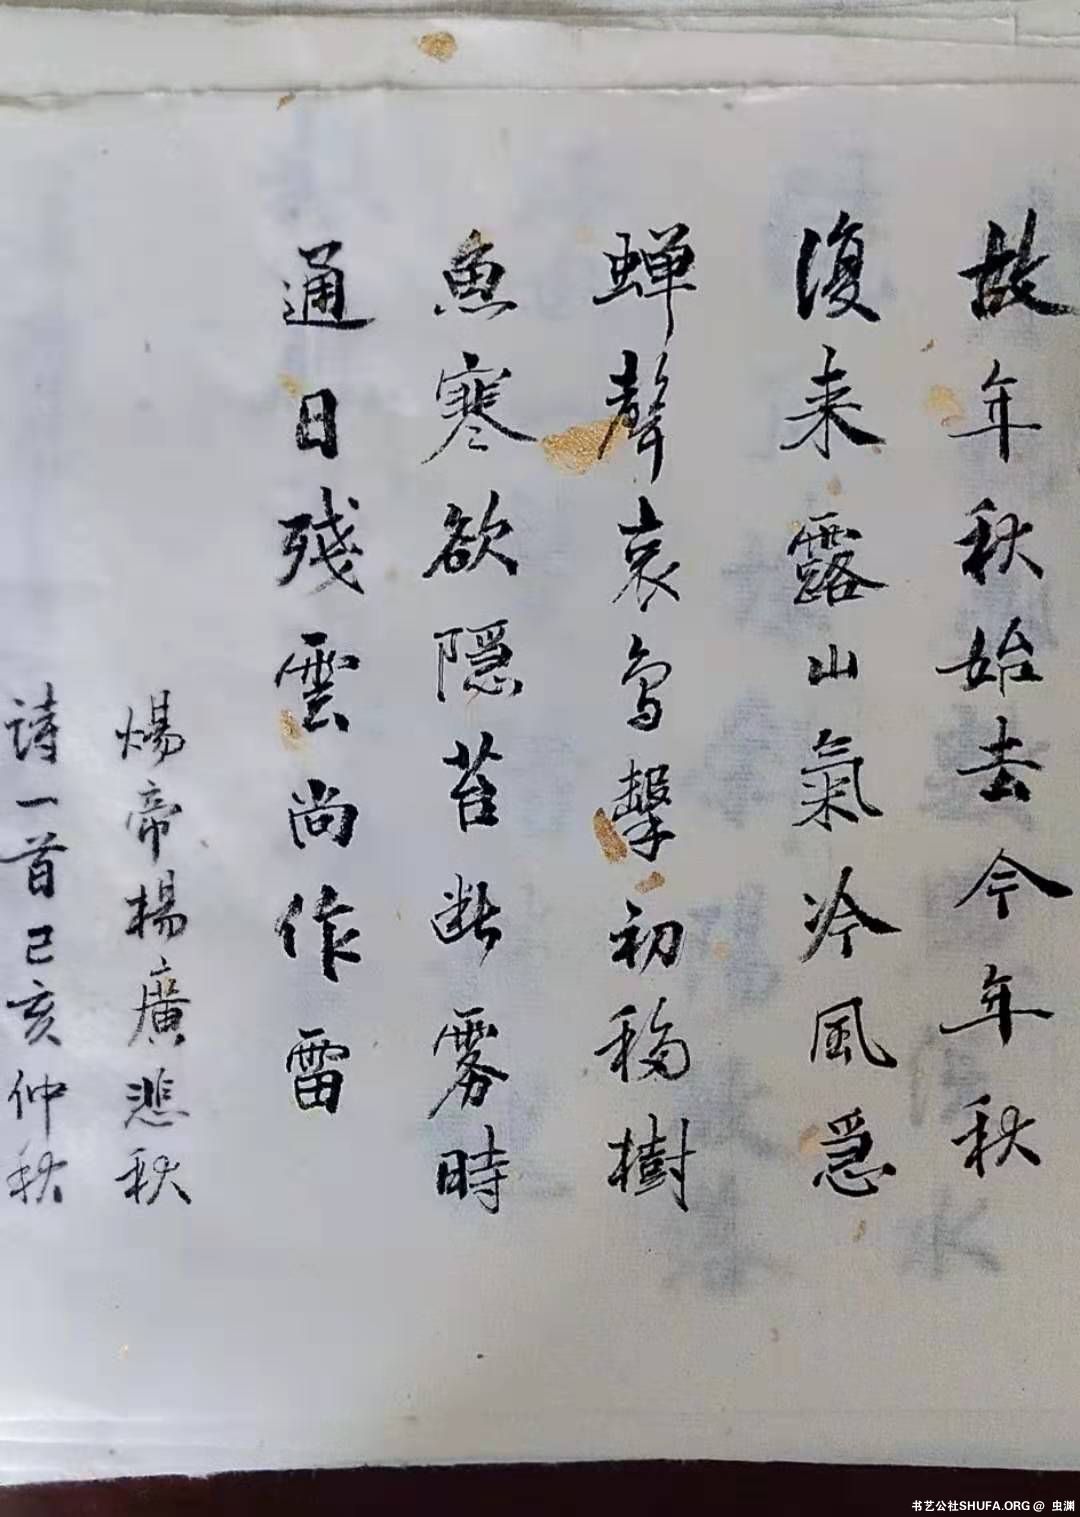 故年秋始去今年秋
復来露山氣冷風急
蟬聲哀鳥擊初移樹
魚寒欲隠苔断霧時
通日殘雲尚作雷
煬帝楊廣悲秋
詩一首己亥仲秋
书艺公社SHUFA.ORG @ 虫渊